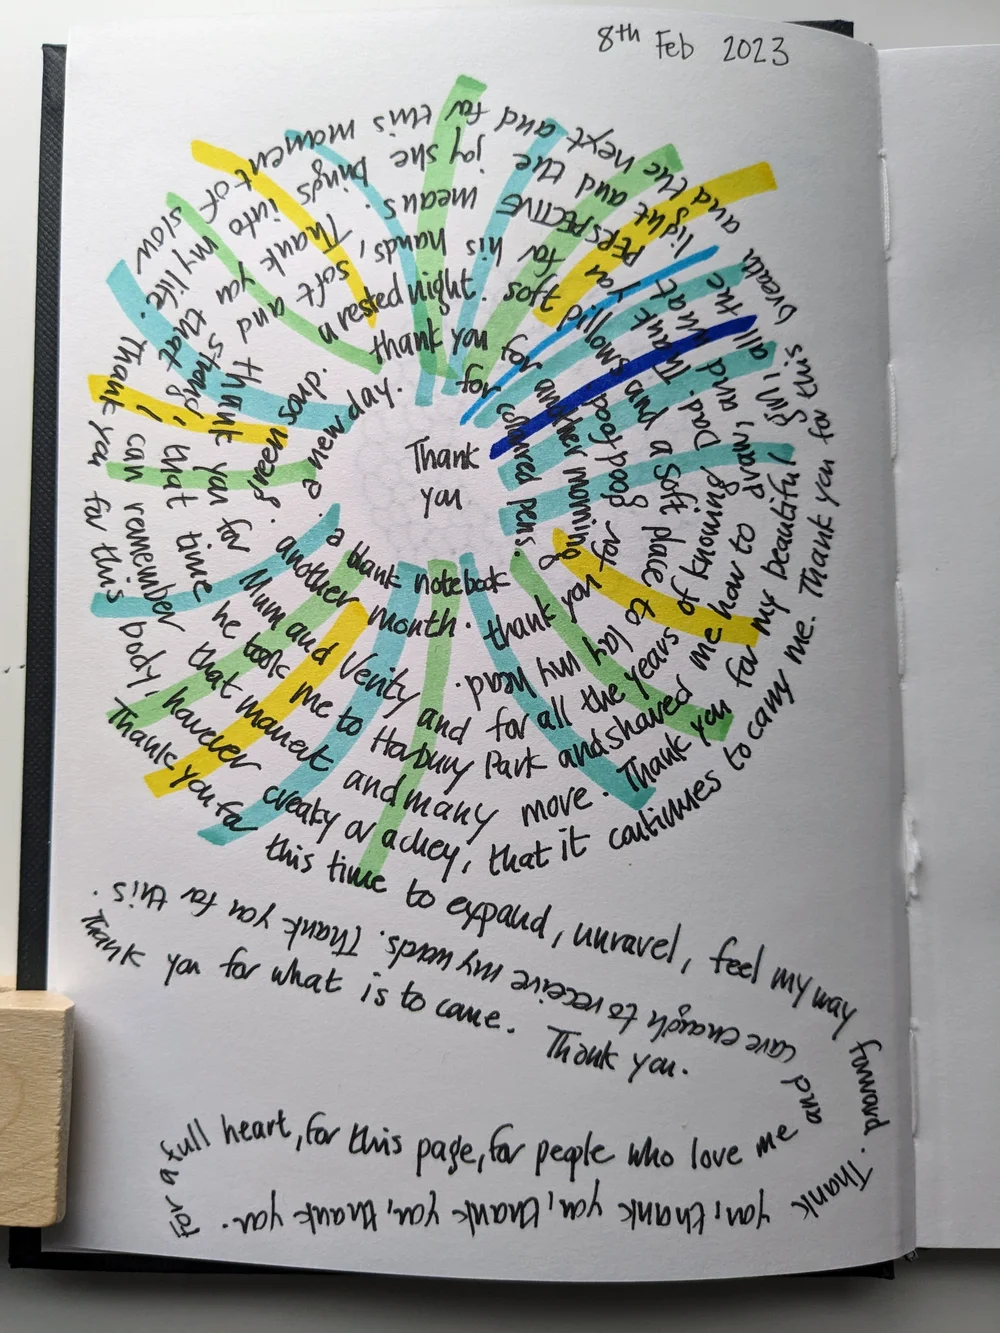 8th Feb 2023
Thank
you
for coloured pens.
a blank notebook
a new day.
thank you for another morning
another month.
green soap.
a rested night.
soft
thank you for
a soft place to
lay my head.
Thank you for
Mum and Verity and for all the years of knowing Dad
Thank you for
his hands, soft and strong,
that time he took me to Harbury Park and shared me how to draw, and what
PERSPECTIVE means. Thank you
that I can remember
that moment and many more. Thank you for my beautiful girl
all the light and the joy she brings into my life.
Thank you for this body, however creaky or achey, that it continues to carry me. Thank you for this breath
and the next and for this moment of slow
Thank you for this time to expand, unravel, feel my way forward. Thank
you, thank you, thank you, thank you, thank you.
For a full heart, for this page, for people who love me and
care enough to receive my words. Thank you for this.
Thank you for what is to come.
Thank you.